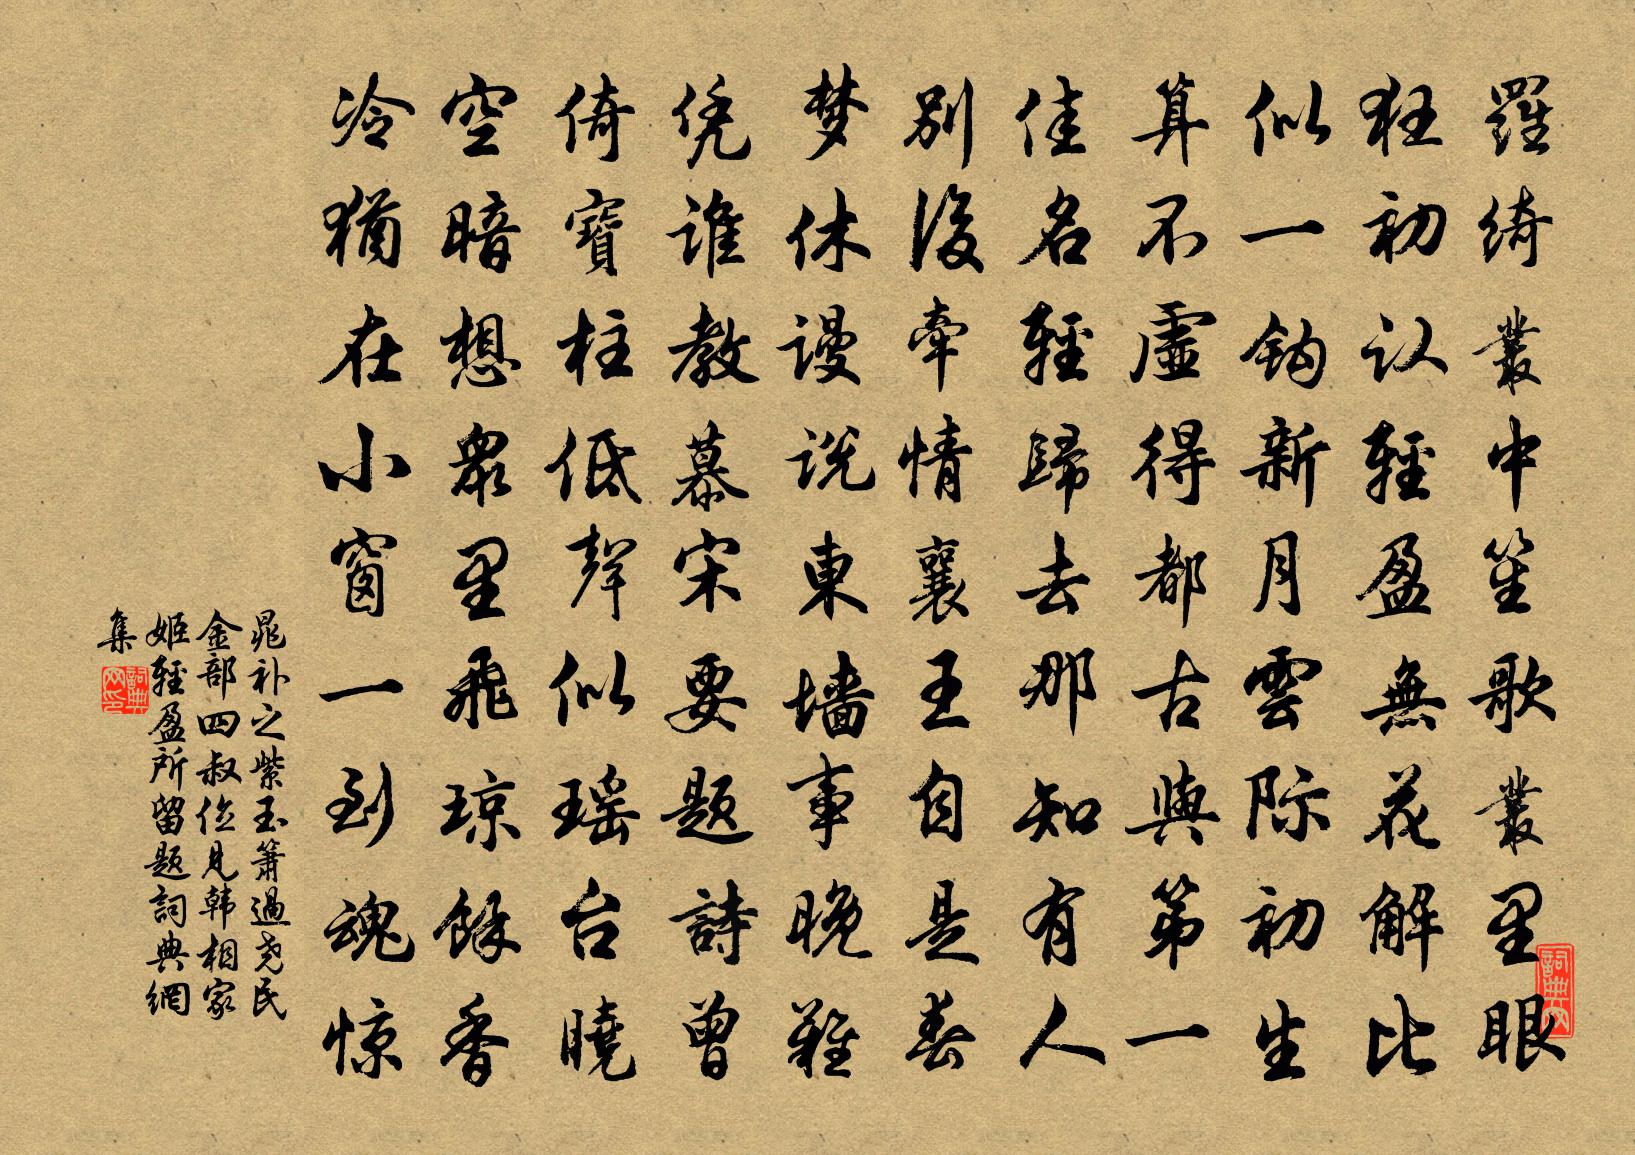 羅綺叢中笙歌叢里眼
狂初认輕盈無花解比
似一鈎新月雲际初生
算不虛得都古與第一
佳名輕歸去那知有人
别後牽情襄王自是春
梦休谩说東墻事晚難
凭谁教慕宋要题詩曾
倚寶柱低聲似瑶台曉
空暗想衆里飛琼餘香
冷猶在小窗一到魂惊
晁补之紫玉簫過尧民
金部四叔位见韩相家
姬輕盈所留题詞典網
集
詞典网印
詞典网